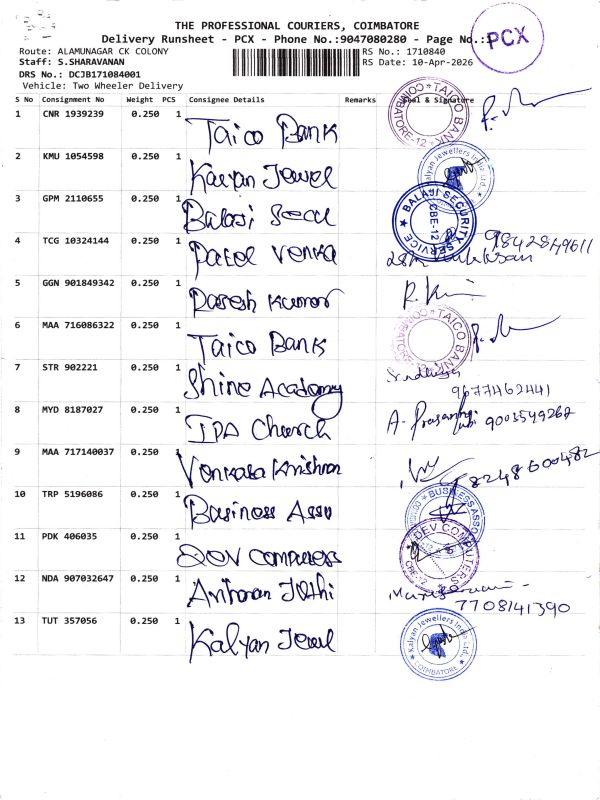 THE PROFESSIONAL COURIERS, COIMBATORE
Delivery Runsheet - PCX - Phone No.:9047080280 - Page No.:
PCX
Route: ALAMUNAGAR CK COLONY
RS No.: 1710840
Staff: S.SHARAVANAN
RS Date: 10-Apr-2026
DRS No.: DCJB171084001
Vehicle: Two Wheeler Delivery
S No Consignment No Weight PCS Consignee Details Remarks Seal & Signature
1 CNR 1939239 0.250 1 Taico Bank
COIMBATORE-12 TAICO BANK
2 KMU 1054598 0.250 1 Kalyan Jewel
Kalyan Jewellers India Ltd.
3 GPM 2110655 0.250 1 Balaji Secu
BALAJI SECURITY SERVICE CBE-12
4 TCG 10324144 0.250 1 Patel Venka
9842849611
5 GGN 901849342 0.250 1 Paresh Kumar
6 MAA 716086322 0.250 1 Taico Bank
TAICO BANK
7 STR 902221 0.250 1 Shine Academy
9677462441
8 MYD 8187027 0.250 1 IPA Church
9 MAA 717140037 0.250 1 Venkata Krishnan
8248600482
10 TRP 5196086 0.250 1 Business Asso
BUSINESS ASSO
11 PDK 406035 0.250 1 DEV Computers
DEV COMPUTERS CBE-12
12 NDA 907032647 0.250 1
7708141390
13 TUT 357056 0.250 1 Kalyan Jewel
Kalyan Jewellers India Ltd., COIMBATORE